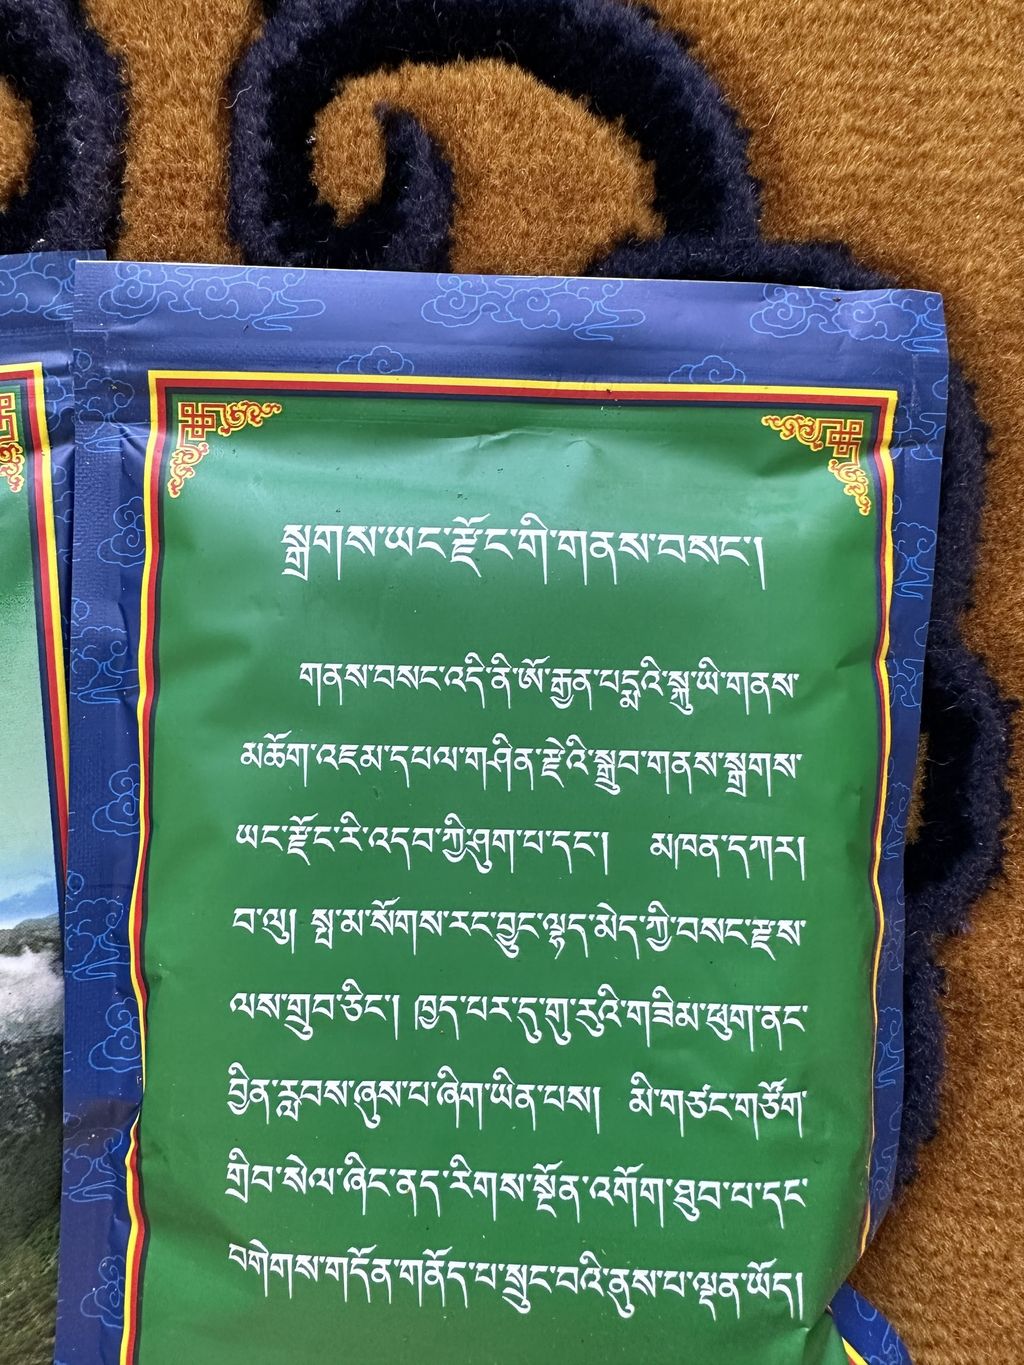 སྒྲགས་ཡང་རྫོང་གི་གནས་བསང་།
གནས་བསང་འདི་ནི་ཨོ་རྒྱན་པདྨའི་སྐུ་ཡི་གནས་
མཆོག་འཇམ་དཔལ་གཤིན་རྗེའི་སྒྲུབ་གནས་སྒྲགས་
ཡང་རྫོང་རི་འདབ་ཀྱི་ཤུག་པ་དང་། མཁན་དཀར།
བ་ལུ། སྤ་མ་སོགས་རང་བྱུང་ལྷད་མེད་ཀྱི་བསང་རྫས་
ལས་གྲུབ་ཅིང་། ཁྱད་པར་དུ་གུ་རུའི་གཟིམ་ཕུག་ནང་
བྱིན་རླབས་ཞུས་པ་ཞིག་ཡིན་པས། མི་གཙང་གཙོག་
གྲིབ་སེལ་ཞིང་ནད་རིགས་སྔོན་འགོག་ཐུབ་པ་དང་
བགེགས་གདོན་གནོད་པ་སྲུང་བའི་ནུས་པ་ལྡན་ཡོད།